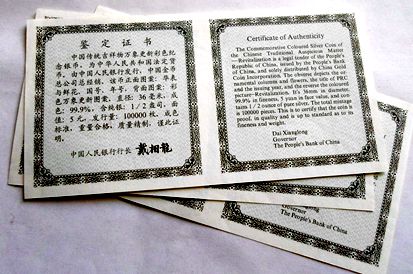 鉴定证书
中国传统吉祥物万象更新彩色纪
念银币，为中华人民共和国法定货
币。由中国人民银行发行，中国金币
总公司总经销。该币正面图案：华表
和鲜花、国号、年号，背面图案：彩
色万象更新图案，直径：36毫米，成
色：99.9%，含纯银：1/2盎司，面
额：5元，发行量：100000枚，成色
标准，重量合格，质量精制，谨此证
明。
中国人民银行行长 戴相龍
Certificate of Authenticity
The Commemorative Coloured Silver Coin of
the Chinese Traditional Auspicious Matter
—Revitalization is a legal tender of the People's
Republic of China, issued by the People's Bank
of China, and solely distributed by China Gold
Coin Incorporation. The obverse depicts the or-
namental columns and flowers, the title of PRC
and the issuing year, and the reverse the coloured
picture-Revitalization. It's 36mm in diameter,
99.9% in fineness, 5 yuan in face value, and con-
tains 1/2 ounce of pure silver. The total mintage
is 100000 pieces. This is to certify that the coin is
proof, in quality and is up to standard as to its
fineness and weight.
Dai Xianglong
Governor
The People's Bank of China
Governor
The People's Bank of China
The People's Bank of China